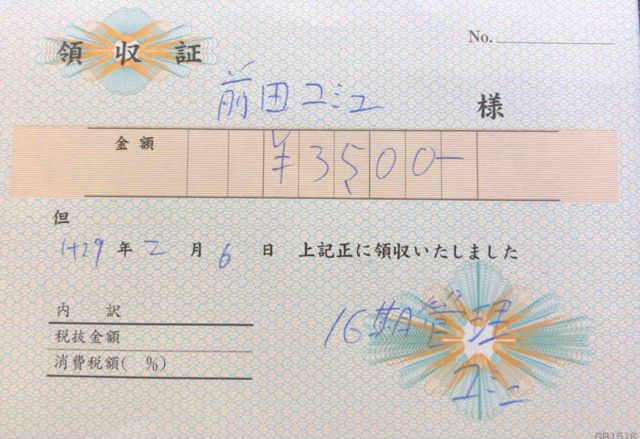 領収証
No.
前田ユミエ 様
金額 ¥3500-
但
H29年2月6日 上記正に領収いたしました
内訳
税抜金額
消費税額( %)
16期管理
ユミエ
GB1516